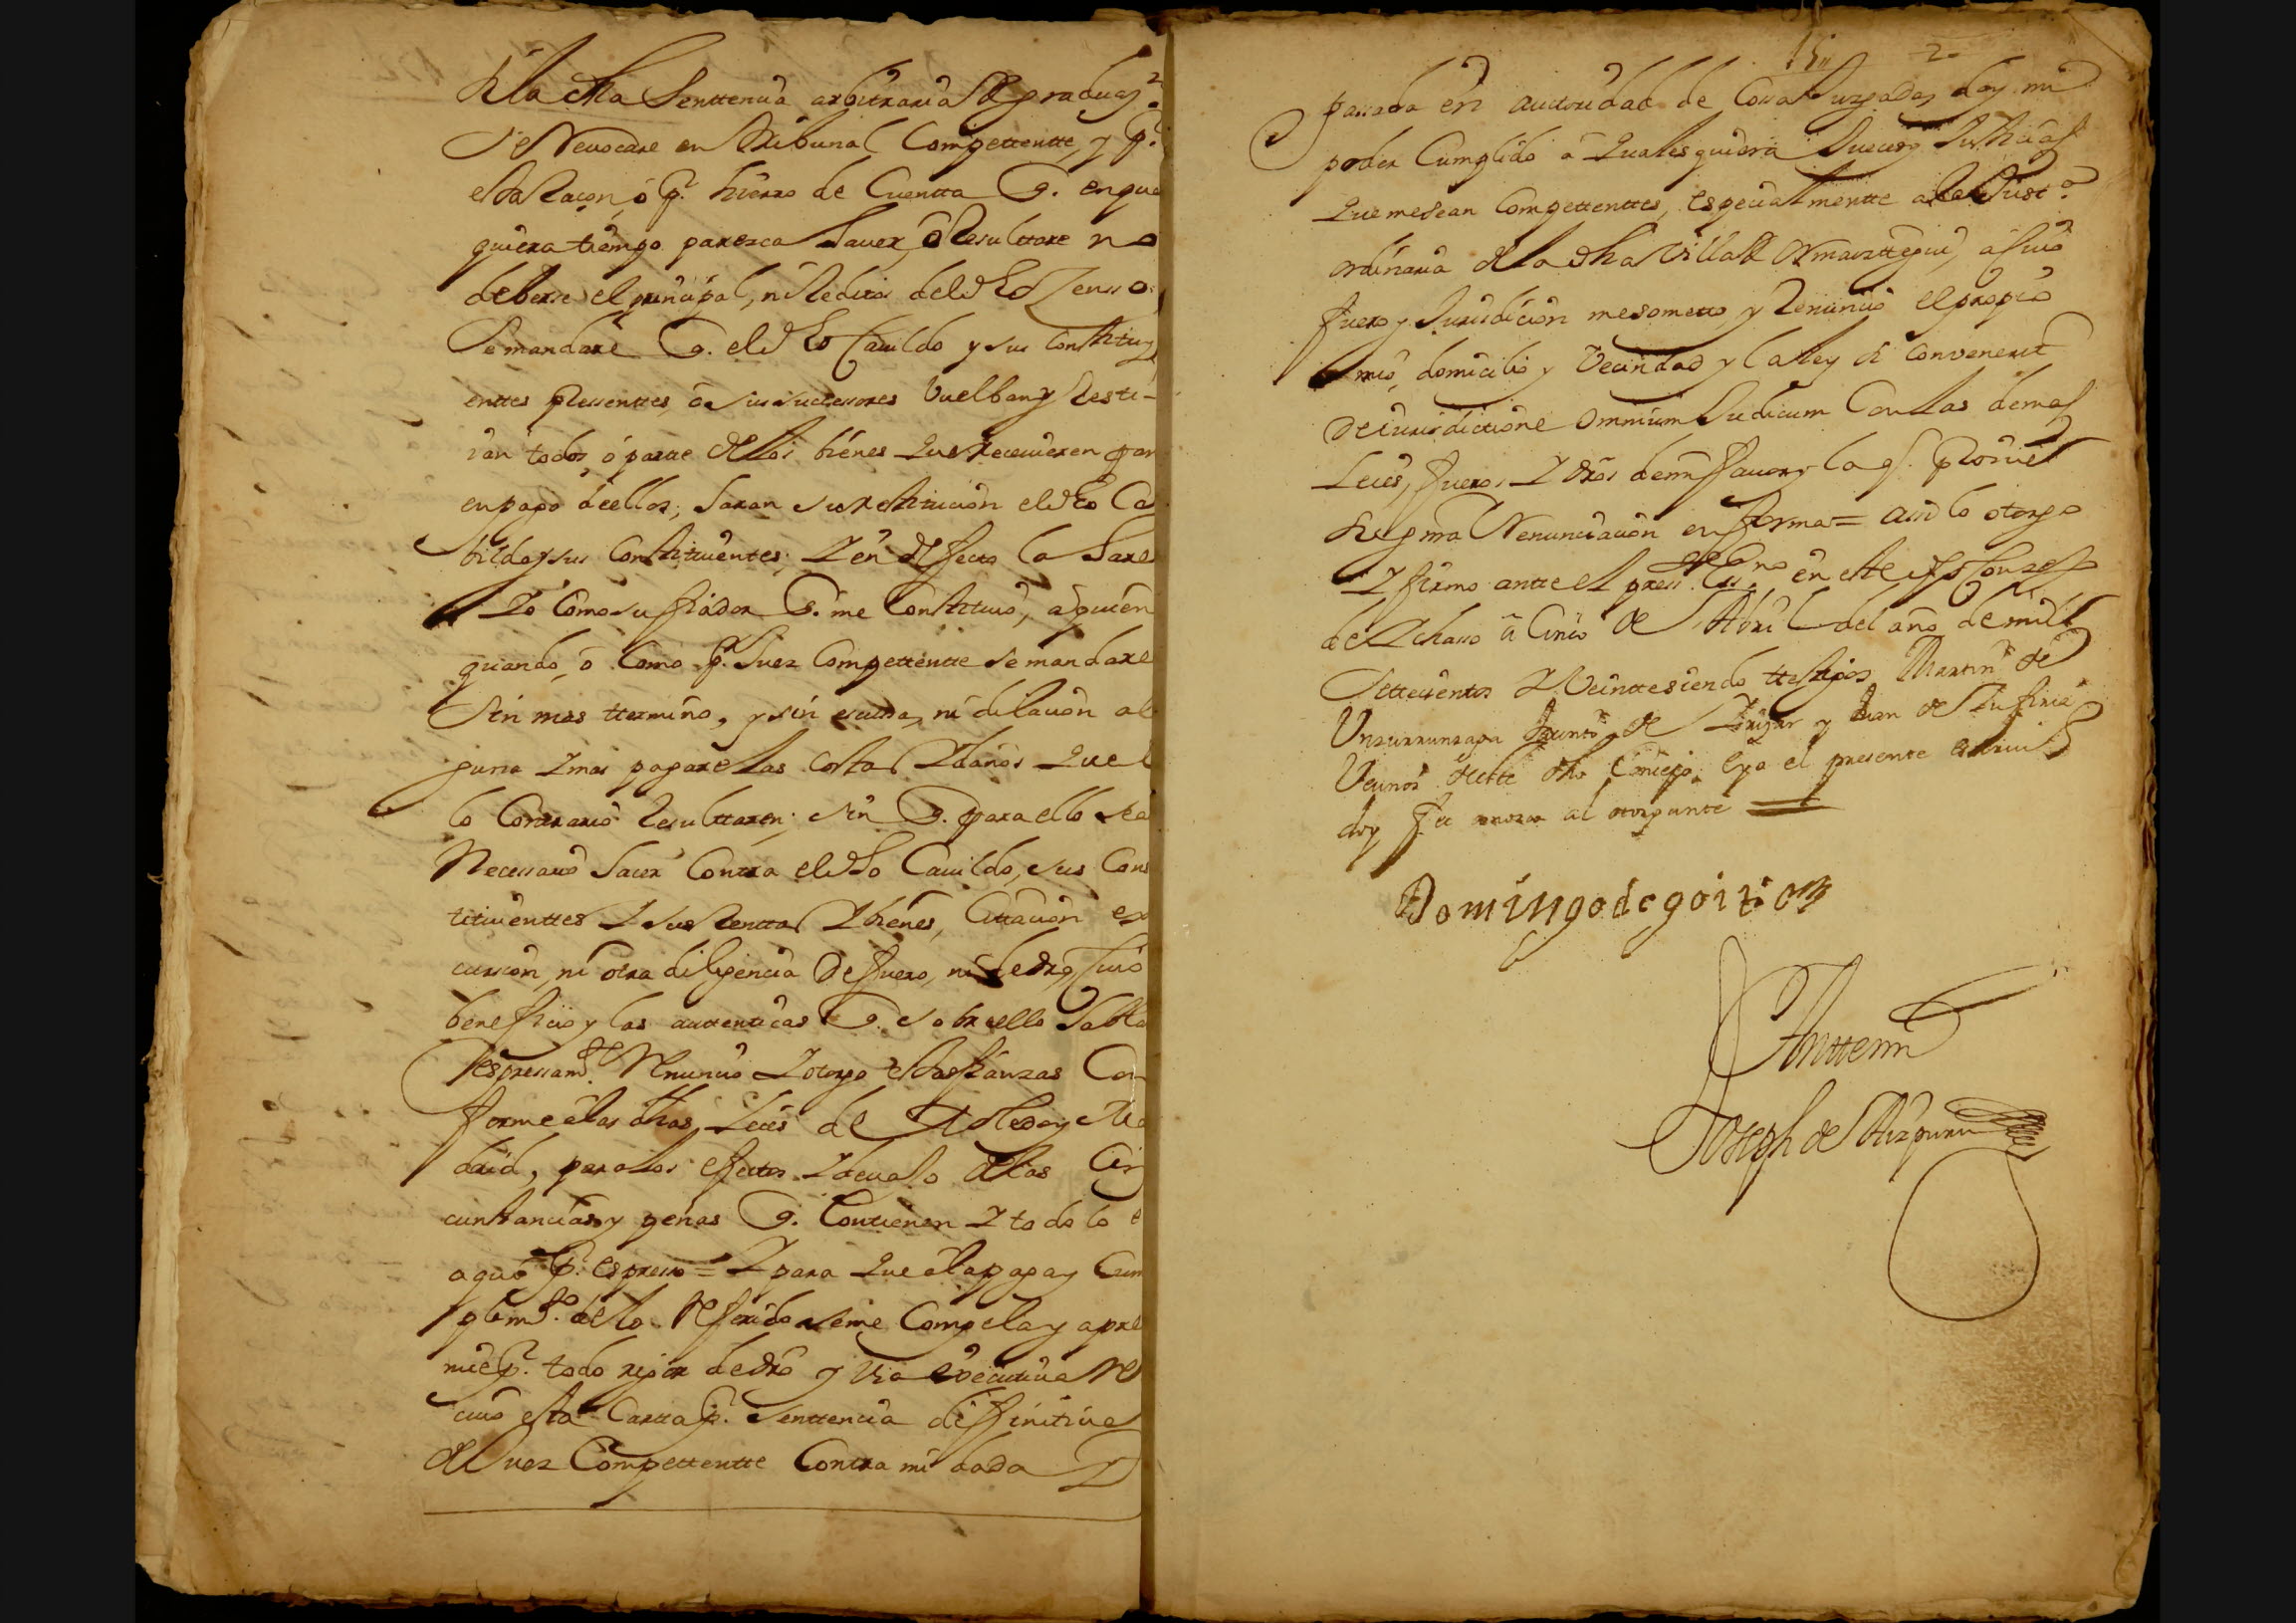 de la dha Senttencia arbitraria de graduaz.on
se Revocare en tribunal Compettentte, y p.r
esta Raçon, ó p.r hierro de Cuentta q. en qua
quiera tiempo paresca haver, ó Resulttare no
deberse el principal, ni Reditos del dho Zensso
se mandare q. el dho Cavildo y sus Constituy
enttes presenttes, ó sus succesores buelban y Resti-
uan todos, ó partte de los bienes que Receuieren par
en pago de ellos, haran su Restituçion el dho Ca
bildo y sus Constituentes, Y en defecto la hare
Yo Como su fiador q. me Constituio, a quien
quando, ó Como p.r Juez Competentte se mandare
sin mas ttermino, y sin escusa, ni dilacion al
guna Y mas pagare las costas Y daños que
lo Contrario Resulttaren; sin q. para ello sea
Necessario hacer Contra el dho Cavildo, sus Cons
tituienttes Y sus Renttas Y bienes, Cittacion ex
cursion, ni otra diligencia de fuero, ni de dro, Cuio
beneficio y las auttenticas q. sobre ello habla
espressam.te Renuncio Y otorgo dha fianzas Con
forme a las dhas Leies de Toledo y Ma
drid, para los efectos Y devajo de las Cir
cunstancias y penas q. Contienen Y todo lo
aqui p.r espresso = Y para que a la paga y Cum
plim.to de lo Referido se me Compela y apre
mie p.r todo rigor de dro y via executiva Re
civo esta Cartta p.r senttencia diffinitiva
de Juez Competentte Contra mi dada Y
15 2
passada en auttoridad de Cossa Juzgada, doy mi
poder Cumplido á qualesquiera Jueces y Justicias
que me sean Compettenttes, especialmentte a la Just.a
ordinaria de la dha Villa de Ormaizttegui, á cuio
fuero y Jurisdicion me sometto, y Renuncio el propio
mio, domicilio y Vecindad y la Ley si Convenerit
de iurisdictione omnium Judicum Con las demas
Leies, fueros Y dros de mi favor y la q. prohive
la gnral Renunciacion en forma = assi lo otorgo
Y firmo antte el press.te ess.no en este dho Conzejo
de Ychaso á Cinco de Abril del año de mill
Settecientos Y Veintte siendo ttestigos Martin de
Juan de
Vecinos de este dho Concejo, e yo el presente escrivano
doy fee conozco al otorgante
Domingo de goitia
Antte mi
Joseph de Aizpuru